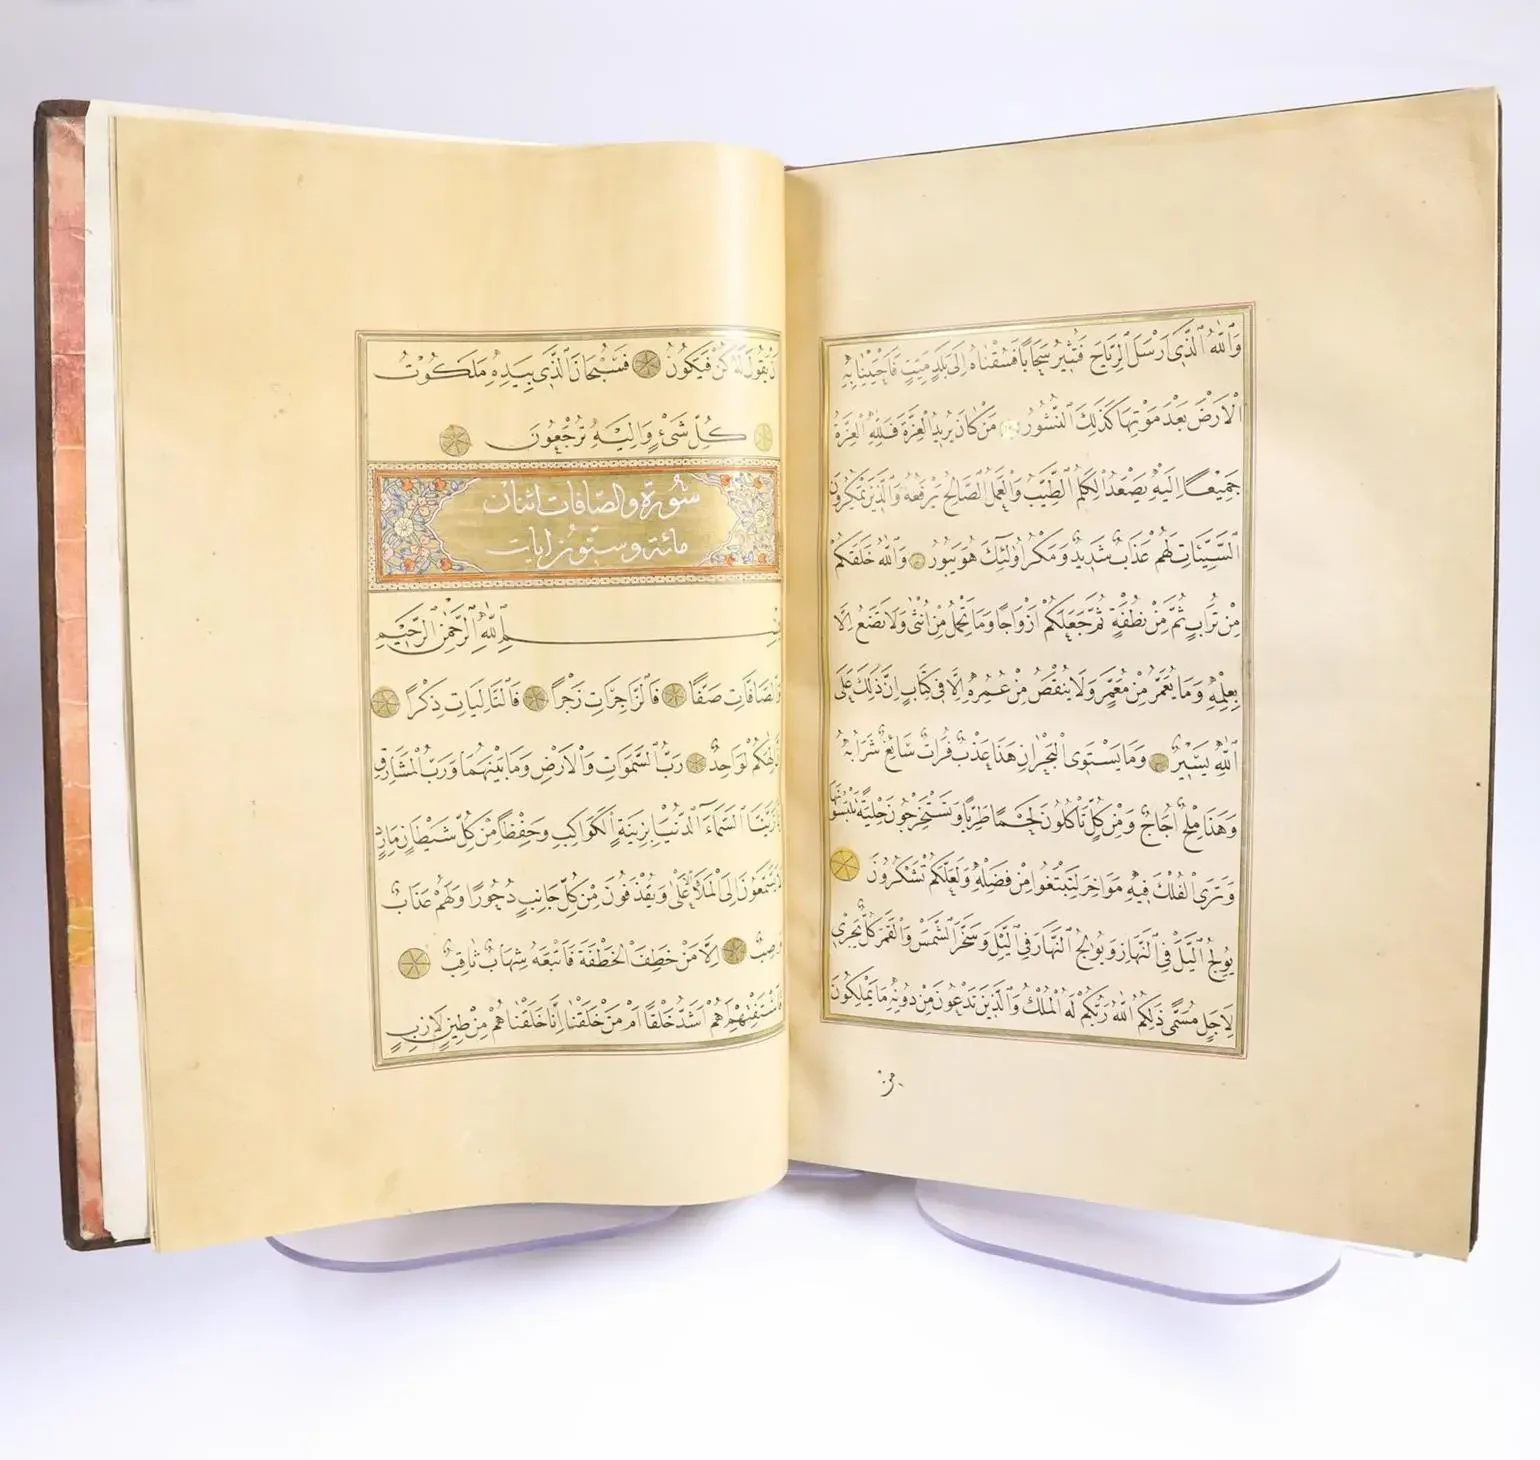 وَاللّٰهُ الَّذٖى اَرْسَلَ الرِّيَاحَ فَتُثٖيرُ سَحَابًا فَسُقْنَاهُ اِلٰى بَلَدٍ مَيِّتٍ فَاَحْيَيْنَا بِهِ
الْاَرْضَ بَعْدَ مَوْتِهَا كَذٰلِكَ النُّشُورُ مَنْ كَانَ يُرٖيدُ الْعِزَّةَ فَلِلّٰهِ الْعِزَّةُ
جَمٖيعًا اِلَيْهِ يَصْعَدُ الْكَلِمُ الطَّيِّبُ وَالْعَمَلُ الصَّالِحُ يَرْفَعُهُ وَالَّذٖينَ يَمْكُرُونَ
السَّيِّئَاتِ لَهُمْ عَذَابٌ شَدٖيدٌ وَمَكْرُ اُولٰئِكَ هُوَ يَبُورُ وَاللّٰهُ خَلَقَكُمْ
مِنْ تُرَابٍ ثُمَّ مِنْ نُطْفَةٍ ثُمَّ جَعَلَكُمْ اَزْوَاجًا وَمَا تَحْمِلُ مِنْ اُنْثٰى وَلَا تَضَعُ اِلَّا
بِعِلْمِهٖ وَمَا يُعَمَّرُ مِنْ مُعَمَّرٍ وَلَا يُنْقَصُ مِنْ عُمُرِهٖ اِلَّا فٖى كِتَابٍ اِنَّ ذٰلِكَ عَلَى
اللّٰهِ يَسٖيرٌ وَمَا يَسْتَوِى الْبَحْرَانِ هٰذَا عَذْبٌ فُرَاتٌ سَائِغٌ شَرَابُهُ
وَهٰذَا مِلْحٌ اُجَاجٌ وَمِنْ كُلٍّ تَأْكُلُونَ لَحْمًا طَرِيًّا وَتَسْتَخْرِجُونَ حِلْيَةً تَلْبَسُونَهَا
وَتَرَى الْفُلْكَ فٖيهِ مَوَاخِرَ لِتَبْتَغُوا مِنْ فَضْلِهٖ وَلَعَلَّكُمْ تَشْكُرُونَ
يُولِجُ الَّيْلَ فِى النَّهَارِ وَيُولِجُ النَّهَارَ فِى الَّيْلِ وَسَخَّرَ الشَّمْسَ وَالْقَمَرَ كُلٌّ يَجْرٖى
لِاَجَلٍ مُسَمًّى ذٰلِكُمُ اللّٰهُ رَبُّكُمْ لَهُ الْمُلْكُ وَالَّذٖينَ تَدْعُونَ مِنْ دُونِهٖ مَا يَمْلِكُونَ
مِنْ
يَقُولَ لَهُ كُنْ فَيَكُونُ فَسُبْحَانَ الَّذٖى بِيَدِهٖ مَلَكُوتُ
كُلِّ شَىْءٍ وَاِلَيْهِ تُرْجَعُونَ
سُورَةُ وَالصَّافَّات اثنان
مائة وستون ايات
بِسْمِ اللّٰهِ الرَّحْمٰنِ الرَّحٖيمِ
وَالصَّافَّاتِ صَفًّا فَالزَّاجِرَاتِ زَجْرًا فَالتَّالِيَاتِ ذِكْرًا
اِلٰهَكُمْ لَوَاحِدٌ رَبُّ السَّمٰوَاتِ وَالْاَرْضِ وَمَا بَيْنَهُمَا وَرَبُّ الْمَشَارِقِ
زَيَّنَّا السَّمَاءَ الدُّنْيَا بِزٖينَةٍ الْكَوَاكِبِ وَحِفْظًا مِنْ كُلِّ شَيْطَانٍ مَارِدٍ
يَسَّمَّعُونَ اِلَى الْمَلَاِ الْاَعْلٰى وَيُقْذَفُونَ مِنْ كُلِّ جَانِبٍ دُحُورًا وَلَهُمْ عَذَابٌ
وَاصِبٌ اِلَّا مَنْ خَطِفَ الْخَطْفَةَ فَاَتْبَعَهُ شِهَابٌ ثَاقِبٌ
فَاسْتَفْتِهِمْ اَهُمْ اَشَدُّ خَلْقًا اَمْ مَنْ خَلَقْنَا اِنَّا خَلَقْنَاهُمْ مِنْ طٖينٍ لَازِبٍ